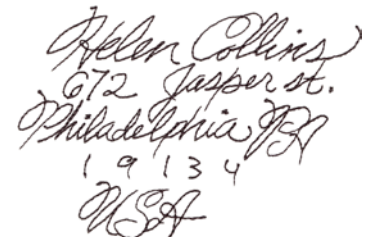 Helen Collins
672 Jasper st.
Philadelphia PA
19134
USA